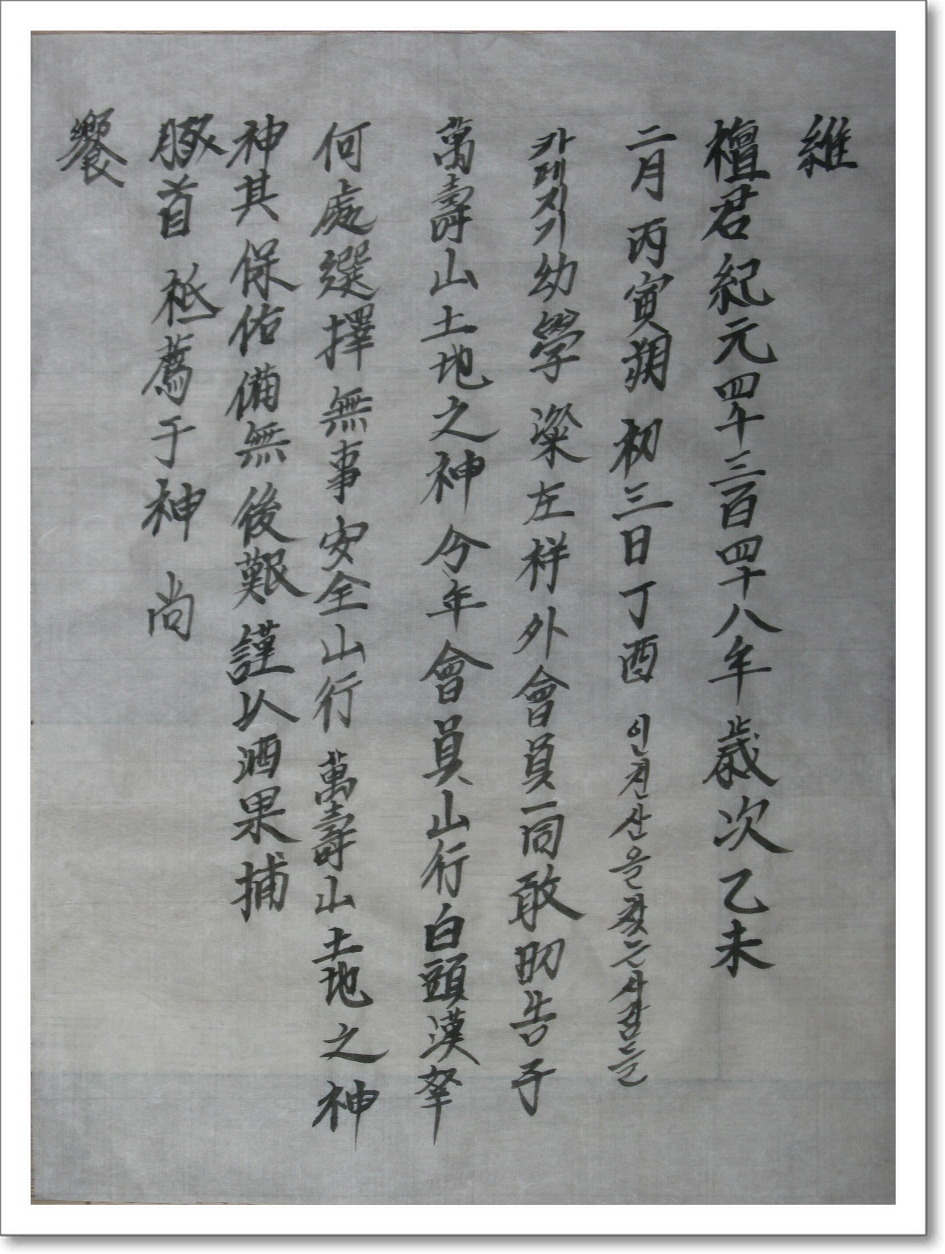 維
檀君紀元四千三百四十八年 歲次 乙未
二月 丙寅朔 初三日丁酉 인천산을찾는사람들
카페지기 幼學 粱左祥外會員一同敢昭告于
萬壽山土地之神 今年會員山行白頭漢拏
何處選擇無事安全山行 萬壽山土地之神
神其保佑備無後艱 謹以酒果捕
豚首 祗薦于神 尙
饗